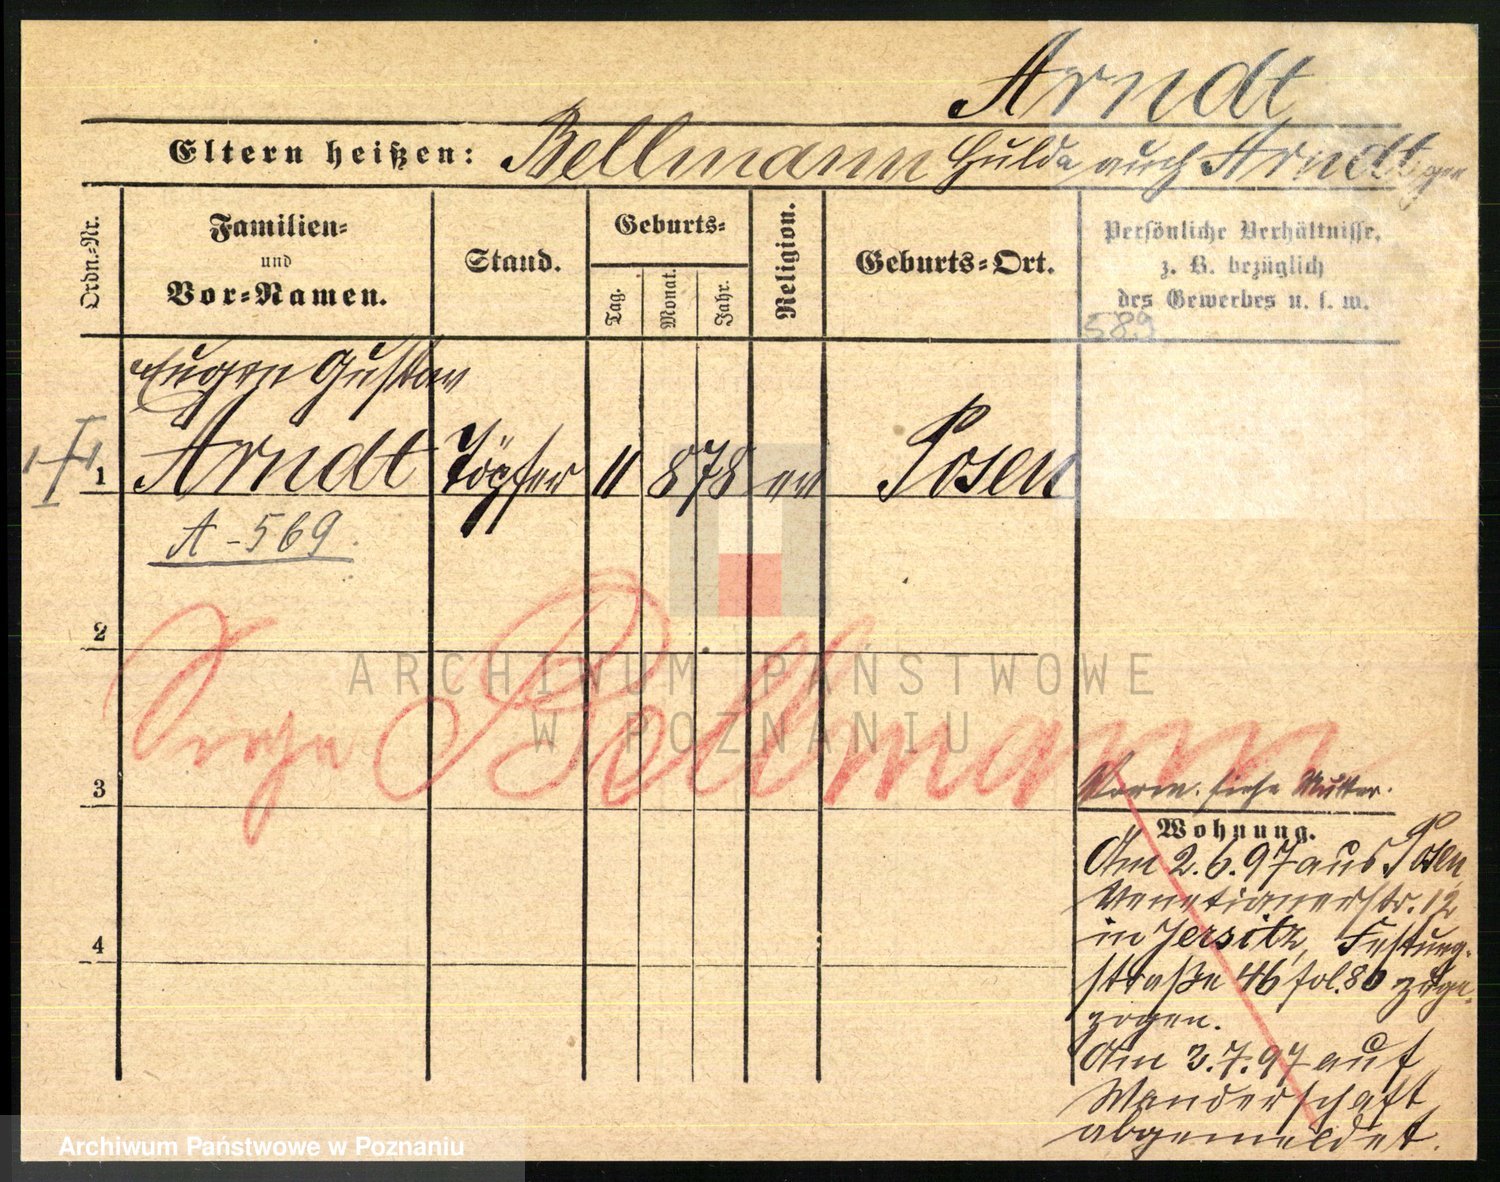 Arndt
Eltern heißen: Bellmann Hulda auch Arndt
Ordn.-Nr.
Familien-
und
Vor-Namen.
Stand.
Geburts-
Tag.
Monat.
Jahr.
Religion.
Geburts-Ort.
Persönliche Verhältnisse,
z. B. bezüglich
des Gewerbes u. s. w.
589
Eugen Gustav
1 Arndt Töpfer 11 8 78 ev Posen
A-569.
2
Siehe Bellmann
ARCHIWUM PAŃSTWOWE
W POZNANIU
3
Vorm. siehe Mutter.
Wohnung.
Am 2.6.97 aus Posen,
Venetianerstr. 12
in Jersitz, Festung-
straße 46 fol. 80 zuge-
zogen.
4
Am 3.7.97 auf
Wanderschaft
abgemeldet.
Archiwum Państwowe w Poznaniu